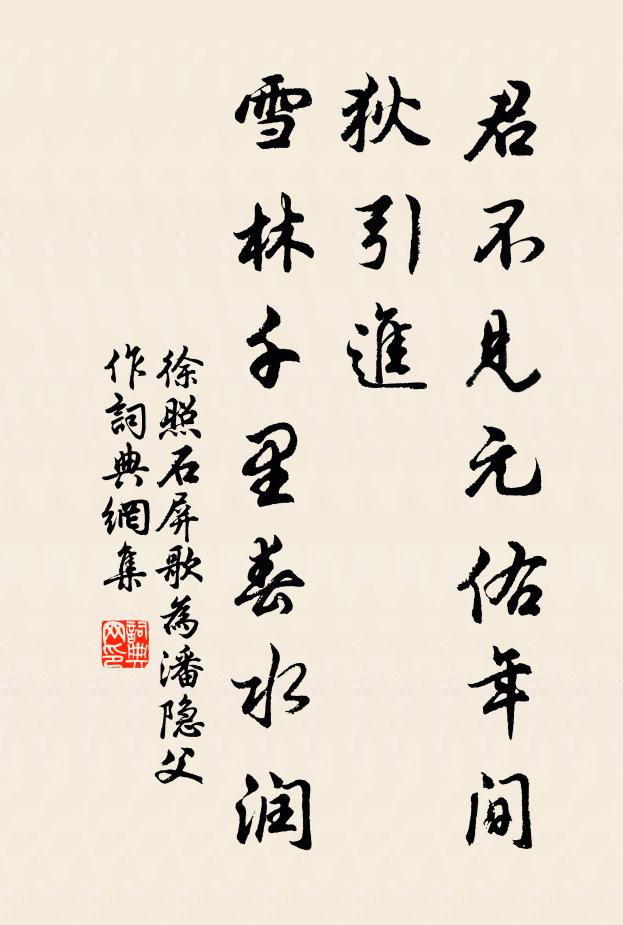 君不見元佑年间
狄引進
雪林千里春水润
徐照石屏歌為潘隐父
作詞典網集
詞典
网印